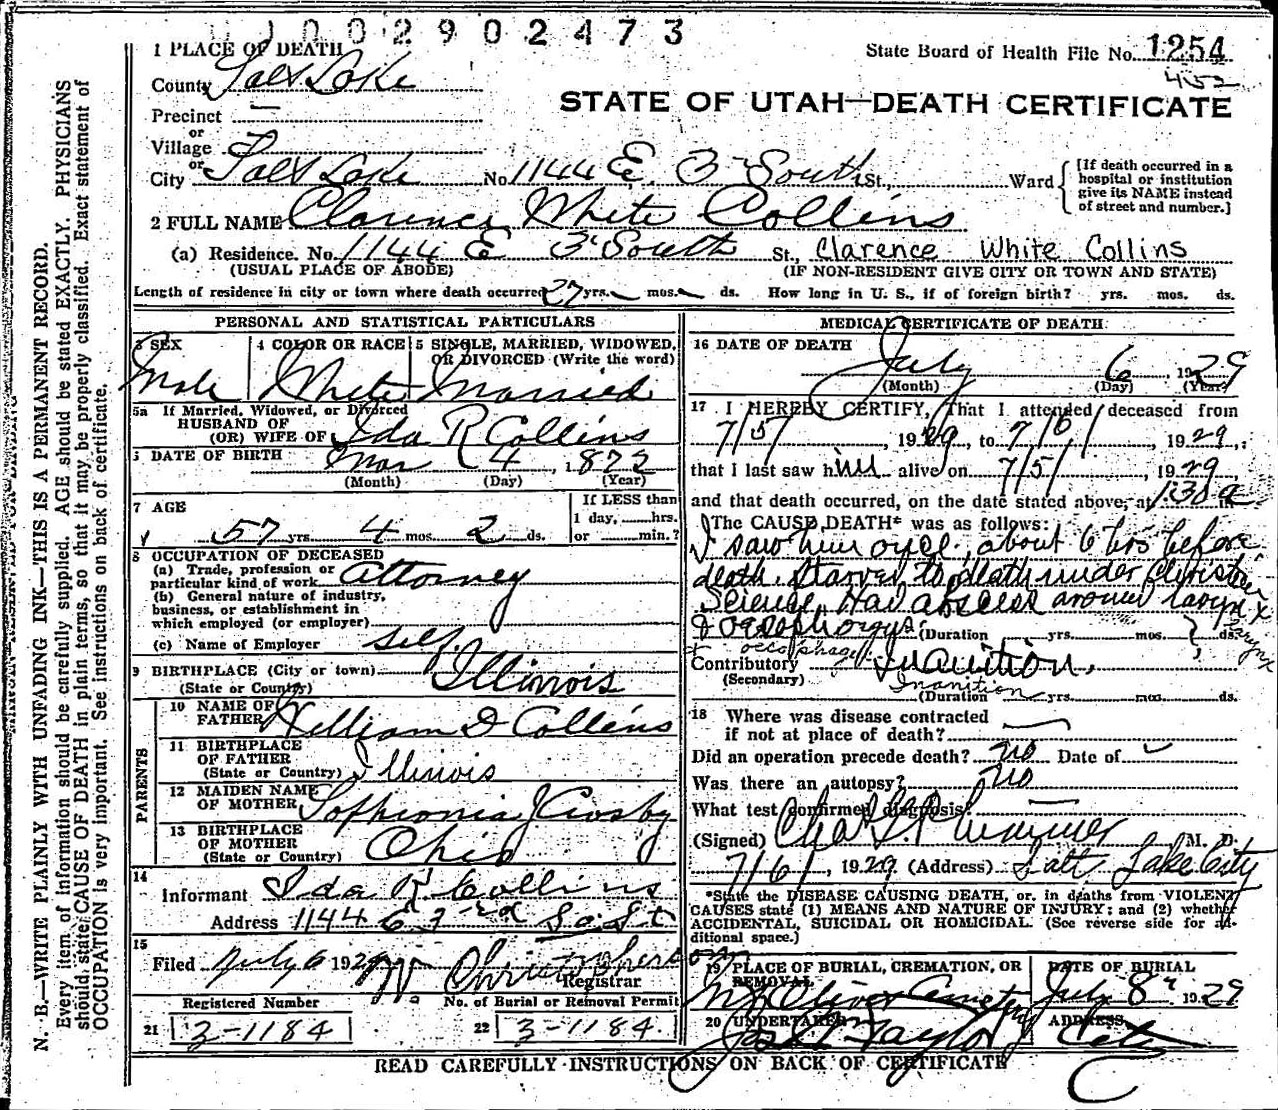 1002902473
1 PLACE OF DEATH
State Board of Health File No. 1254
County Salt Lake
452
STATE OF UTAH—DEATH CERTIFICATE
Precinct —
or
Village
or
City Salt Lake No. 1144 E. 3 South St., Ward
[If death occurred in a hospital or institution give its NAME instead of street and number.]
2 FULL NAME Clarence White Collins
(a) Residence. No. 1144 E 3 South St., Clarence White Collins
(USUAL PLACE OF ABODE) (IF NON-RESIDENT GIVE CITY OR TOWN AND STATE)
Length of residence in city or town where death occurred 27 yrs. — mos. — ds. How long in U. S., if of foreign birth? yrs. mos. ds.
PERSONAL AND STATISTICAL PARTICULARS
3 SEX 4 COLOR OR RACE 5 SINGLE, MARRIED, WIDOWED, OR DIVORCED (Write the word)
Male White Married
5a If Married, Widowed, or Divorced
HUSBAND OF
(OR) WIFE OF Ida R Collins
DATE OF BIRTH Mar 4, 1872
(Month) (Day) (Year)
7 AGE
If LESS than
1 day, hrs.
57 yrs. 4 mos. 2 ds. or min.?
8 OCCUPATION OF DECEASED
(a) Trade, profession or
particular kind of work Attorney
(b) General nature of industry,
business, or establishment in
which employed (or employer)
(c) Name of Employer self.
9 BIRTHPLACE (City or town)
(State or Country) Illinois
PARENTS
10 NAME OF
FATHER William D Collins
11 BIRTHPLACE
OF FATHER
(State or Country) Illinois
12 MAIDEN NAME
OF MOTHER Sophronia J Crosby
13 BIRTHPLACE
OF MOTHER
(State or Country) Ohio
14
Informant Ida R. Collins
Address 1144 E 3rd So. St
15
Filed July 6 1929 W Christopherson
Registrar
Registered Number No. of Burial or Removal Permit
21 3-1184 22 3-1184.
MEDICAL CERTIFICATE OF DEATH
16 DATE OF DEATH
July 6, 1929
(Month) (Day) (Year)
17 I HEREBY CERTIFY, That I attended deceased from
7/5/, 1929, to 7/6/, 1929,
that I last saw him alive on 7/5/, 1929
and that death occurred, on the date stated above, at 1:30 a m
The CAUSE DEATH* was as follows:
I saw him once, about 6 hrs before
death. Starved to death under Christian
Science. Had abscess around larynx
& oesophogys.
larynx
(Duration yrs. mos. ds.
Contributory Inanition.
(Secondary) Inanition
(Duration yrs. mos. ds.
18 Where was disease contracted
if not at place of death? —
Did an operation precede death? no Date of
Was there an autopsy? no
What test confirmed diagnosis —
(Signed) Chas. G. Plummer M. D.
7/6/, 1929 (Address) Salt Lake City
*State the DISEASE CAUSING DEATH, or, in deaths from VIOLENT
CAUSES state (1) MEANS AND NATURE OF INJURY; and (2) whether
ACCIDENTAL, SUICIDAL OR HOMICIDAL. (See reverse side for additional space.)
19 PLACE OF BURIAL, CREMATION, OR REMOVAL DATE OF BURIAL
Mt Olivet Cemetery July 8, 1929
20 UNDERTAKER ADDRESS
Taylor City
READ CAREFULLY INSTRUCTIONS ON BACK OF CERTIFICATE
N. B.—WRITE PLAINLY WITH UNFADING INK—THIS IS A PERMANENT RECORD.
Every item of information should be carefully supplied. AGE should be stated EXACTLY. PHYSICIANS
should state CAUSE OF DEATH in plain terms, so that it may be properly classified. Exact statement of
OCCUPATION is very important. See instructions on back of certificate.